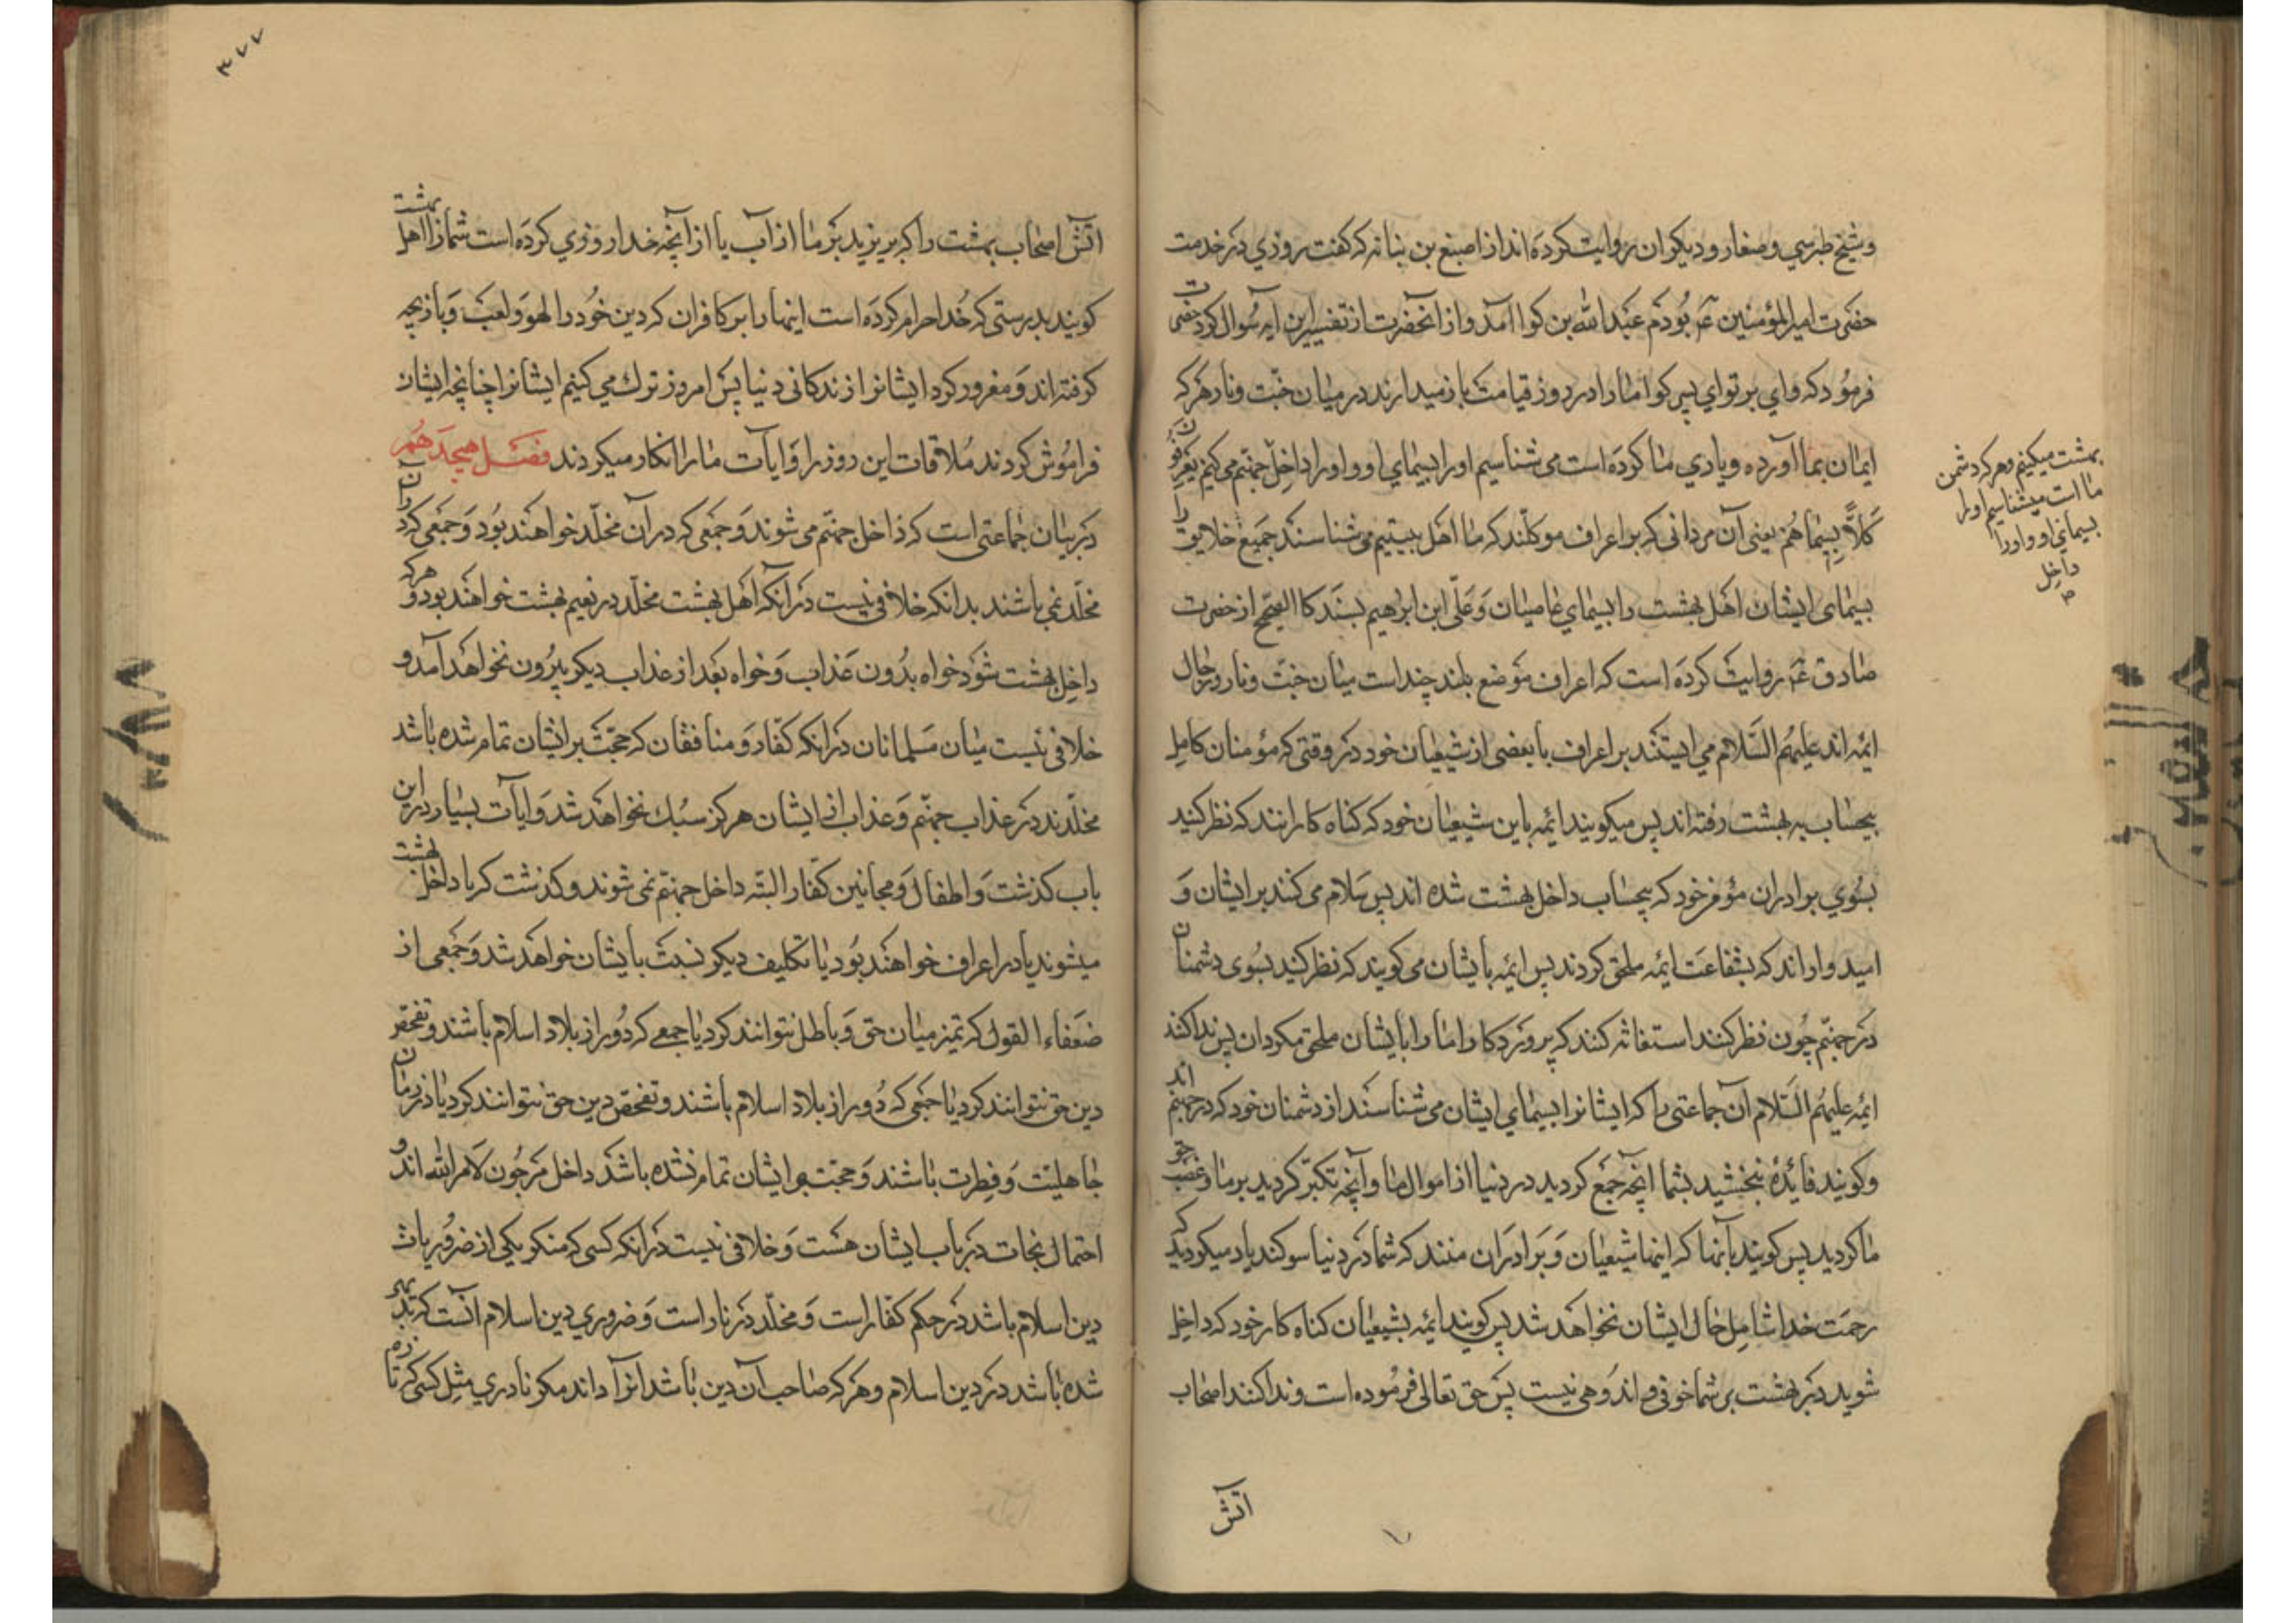 وشیخ طبرسي وصفار ودیکران روایت کرده اند از اصبغ بن بناته که کفت روزي در خدمت
حضرت امیرالمؤمنین عم بودم عبدالله بن کوا آمد و از آنحضرت از تفسیر این ایه سوال کرد حضرت
فرمود که واي بر تو اي پسر کوا ما را در روز قیامت باز میدارند در میان جنت ونار هرکه
ایمان بما آورده ویاري ما کرده است می شناسیم او را بسیماي او و او را داخل جهنم می کنیم یعرفون
کلاً بسیماهم یعنی آن مردانی که بر اعراف موکلند که ما اهل بیتیم می شناسند جمیع خلایق را
بسیمای ایشان اهل بهشت را بسیماي عاصیان وعلی ابن ابرهیم بسند کالصحیح از حضرت
صادق عم روایت کرده است که اعراف موضع بلند چند است میان جنت ونار ورجال
ائمه اند علیهم السلام می ایستند بر اعراف با بعضی از شیعیان خود در وقتی که مؤمنان کامل
بیحساب به بهشت رفته اند پس میکویند ائمه باین شیعیان خود که کناه کارانند که نظر کنید
بسوي برادران مؤمن خود که بیحساب داخل بهشت شده اند پس سلام می کنند بر ایشان و
امیدوار اند که بشفاعت ائمه ملحق کردند پس ائمه بایشان می کویند که نظر کنید بسوی دشمنان
در جهنم چون نظر کنند استغاثه کنند که پروردکارا ما را بایشان ملحق مکردان پس ندا کنند
ائمه علیهم السلام آن جماعتی را که ایشانرا بسیماي ایشان می شناسند از دشمنان خود که در جهنم اند
وکویند فائدۀ نبخشید بشما آنچه جمع کردید در دنیا از اموال ما وآنچه تکبر کردید بر ما وغصب حق
ما کردید پس کویند بآنها که اینها شیعیان وبرادران منند که شما در دنیا سوکند یاد میکردید که
رحمت خدا شامل حال ایشان نخواهد شد پس کویند ائمه بشیعیان کناه کار خود که داخل
شوید در بهشت بر شما خوفی واندوهی نیست پس حق تعالی فرموده است وندا کنند اصحاب
آتش
بهشت میکنیم وهرکه دشمن
ما است میشناسیم او را
بسیماي او و او را
داخل
صح
٣٧٧
آتش اصحاب بهشت را که بریزید بر ما از آب یا از آنچه خدا روزي کرده است شما را اهل بهشت
کویند بدرستی که خدا حرام کرده است اینها را بر کافران که دین خود را لهو ولعب وبازیچه
کرفته اند ومغرور کرد ایشانرا زندکانی دنیا پس امروز ترك می کنیم ایشانرا چنانچه ایشان
فراموش کردند ملاقات این روز را وآیات ما را انکار میکردند فصل هیجدهم
در بیان جماعتی است که داخل جهنم می شوند وجمعی که در آن مخلد خواهند بود وجمعی که در آن
مخلد نمی باشند بدانکه خلافی نیست در آنکه اهل بهشت مخلد در نعیم بهشت خواهند بود و هرکه
داخل بهشت شود خواه بدون عذاب وخواه بعد از عذاب دیکر بیرون نخواهد آمد و
خلافی نیست میان مسلمانان در آنکه کفار ومنافقان که حجت بر ایشان تمام شده باشد
مخلدند در عذاب جهنم وعذاب از ایشان هرکز سبك نخواهد شد وآیات بسیار در این
باب کذشت واطفال ومجانین کفار البته داخل جهنم نمی شوند وکذشت که یا داخل بهشت
میشوند یا در اعراف خواهند بود یا تکلیف دیکر نسبت بایشان خواهد شد وجمعی از
ضعفاء العقول که تمیز میان حق وباطل نتوانند کرد یا جمعی که دور از بلاد اسلام باشند وتفحص
دین حق نتوانند کرد یا جمعی که دور از بلاد اسلام باشند وتفحص دین حق نتوانند کرد یا در زمان
جاهلیت وفطرت باشند وحجت بر ایشان تمام نشده باشد داخل مرجون لامر الله اند و
احتمال نجات در باب ایشان هست وخلافی نیست در آنکه کسی که منکر یکی از ضروریات
دین اسلام باشد در حکم کفار است ومخلد در نار است وضروري دین اسلام آنست که بدیهی
شده باشد در دین اسلام وهرکه صاحب آن دین باشد انرا داند مکر نادري مثل کسی که تازه